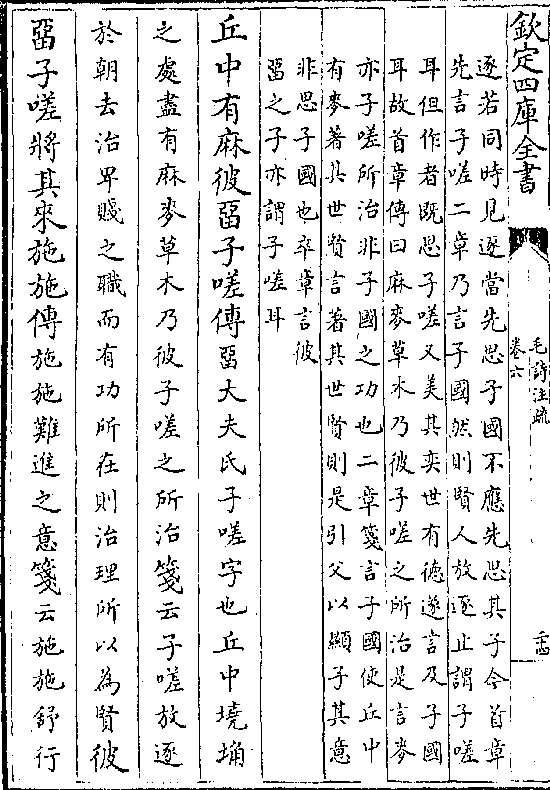 欽定四庫全書
毛詩注疏
卷六
逐若同時見逐當先思子國不應先思其子今首章
先言子嗟二章乃言子國然則賢人放逐止謂子嗟
耳但作者既思子嗟又美其奕世有德遂言及子國
耳故首章傳曰麻麥草木乃彼子嗟之所治是言麥
亦子嗟所治非子國之功也二章箋言子國使丘中
有麥著其世賢言著其世賢則是引父以顯子其意
非思子國也卒章言彼
畱之子亦謂子嗟耳
丘中有麻彼畱子嗟傳畱大夫氏子嗟字也丘中墝埆
之處盡有麻麥草木乃彼子嗟之所治箋云子嗟放逐
於朝去治卑賤之職而有功所在則治理所以為賢彼
畱子嗟將其來施施傳施施難進之意箋云施施舒行